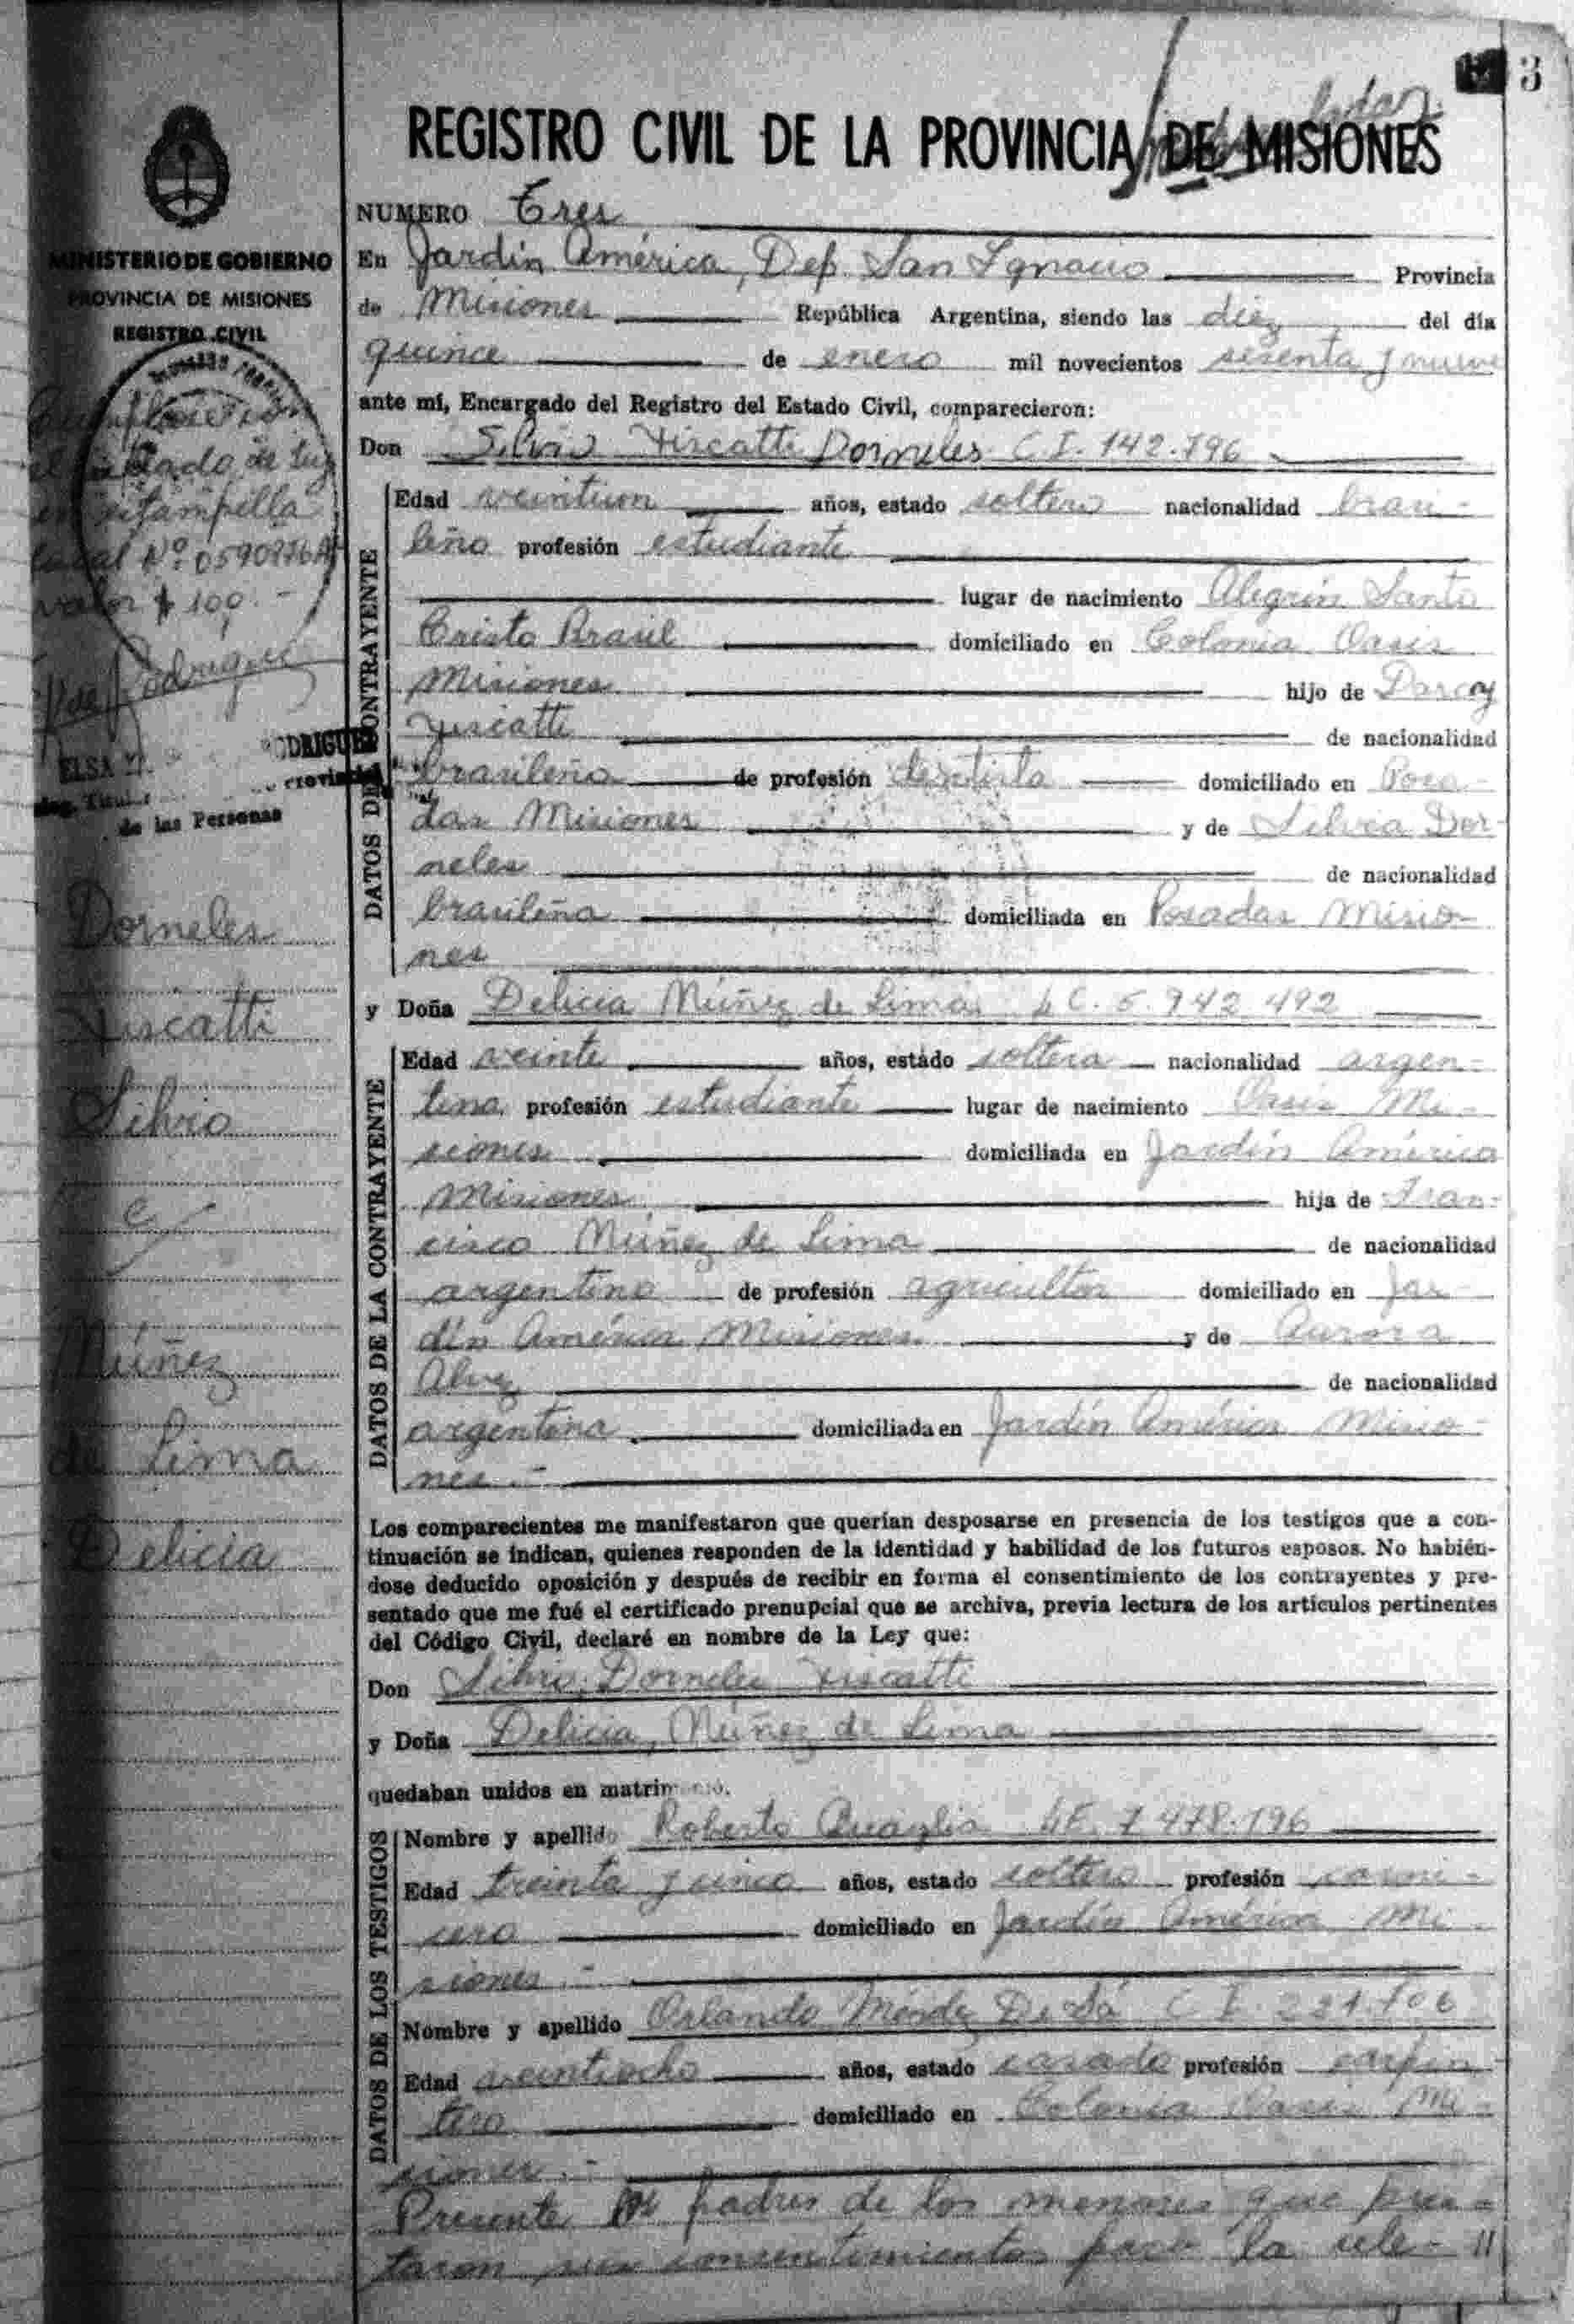 3
REGISTRO CIVIL DE LA PROVINCIA DE MISIONES
NUMERO Tres
En Jardín América, Dep. San Ignacio Provincia
de Misiones República Argentina, siendo las diez del día
quince de enero mil novecientos sesenta y nueve
ante mí, Encargado del Registro del Estado Civil, comparecieron:
Don Silvio Dorneles C.I. 142.796
Edad veintiun años, estado soltero nacionalidad brasi-
leño profesión estudiante
lugar de nacimiento Alegrin Santo
Cristo Brasil domiciliado en Colonia Oasis
Misiones hijo de Darcy
de nacionalidad
brasileña de profesión dentista domiciliado en Posa-
das Misiones y de Silvia Dor-
neles de nacionalidad
brasileña domiciliada en Posadas Misio-
nes
y Doña Delicia Múñez de Lima L.C. 5.942.492
Edad veinte años, estado soltera nacionalidad argen-
tina profesión estudiante lugar de nacimiento Oasis Mi-
siones domiciliada en Jardín América
Misiones hija de Fran-
cisco Múñez de Lima de nacionalidad
argentino de profesión agricultor domiciliado en Jar-
dín América Misiones y de Aurora
Alvez de nacionalidad
argentina domiciliada en Jardín América Misio-
nes.-
Los comparecientes me manifestaron que querían desposarse en presencia de los testigos que a con-
tinuación se indican, quienes responden de la identidad y habilidad de los futuros esposos. No habién-
dose deducido oposición y después de recibir en forma el consentimiento de los contrayentes y pre-
sentado que me fué el certificado prenupcial que se archiva, previa lectura de los artículos pertinentes
del Código Civil, declaré en nombre de la Ley que:
Don Silvio Dorneles
y Doña Delicia Múñez de Lima
quedaban unidos en matrimonio.
Nombre y apellido Roberto Quaglia L.E. 7.478.196
Edad treinta y cinco años, estado soltero profesión carni-
cero domiciliado en Jardín América Mi-
siones.-
Nombre y apellido Orlando Méndez De Sá C.I.
Edad veintiocho años, estado casado profesión carpin-
tero domiciliado en Colonia Oasis Mi-
siones.-
Presente los padres de los menores que pres-
taron sus consentimientos para la cele- //
DATOS DEL CONTRAYENTE
DATOS DE LA CONTRAYENTE
DATOS DE LOS TESTIGOS
MINISTERIO DE GOBIERNO
PROVINCIA DE MISIONES
REGISTRO CIVIL
sellado de Ley
en estampilla
fiscal Nº 0590876A
valor $ 100.-
Rodriguez
ELSA RODRIGUEZ
de las Personas
Dorneles
Silvio
e
Múñez
de Lima
Delicia